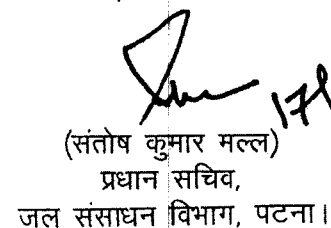 (संतोष कुमार मल्ल)
प्रधान सचिव,
जल संसाधन विभाग, पटना।